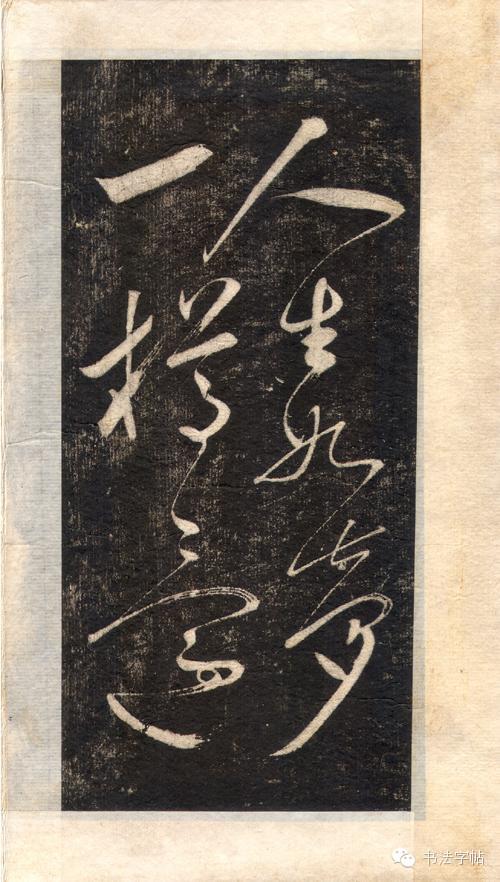 人生如夢
一樽還
书法字帖